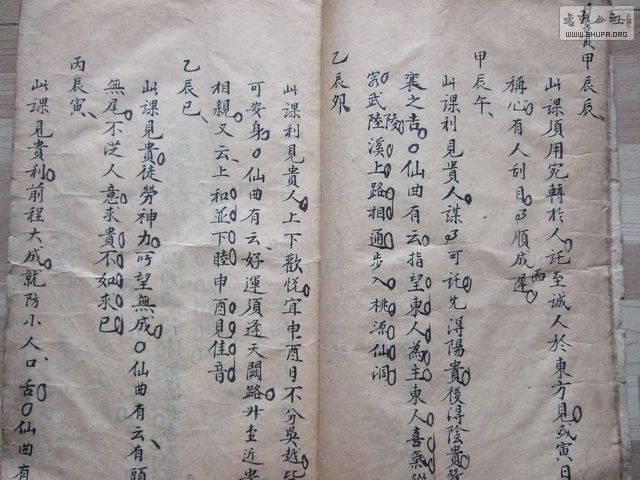 甲辰辰、
此課須用宛轉於人託至誠人於東方見或寅日
稱心有人刮目乃順成而遲
甲辰午、
此課利見貴人謀乃可託先得陽貴後得陰貴
襄之吉〇仙曲有云指望東人為主東人喜氣從
容武陵溪上路相通步入桃源仙洞
乙辰卯、
此課利見貴人上下歡悅宜申酉日不分吳越皆
可安身〇仙曲有云好運須逢天闕路升堂近貴
相親又云上和並下睦申酉見佳音
乙辰巳、
此課見貴徒勞神力所望無成〇仙曲有云有頭
無尾不從人意求貴不如求已
丙辰寅、
此課見貴利前程大成就防小人口舌〇仙曲有
書法公社
WWW.SHUFA.ORG